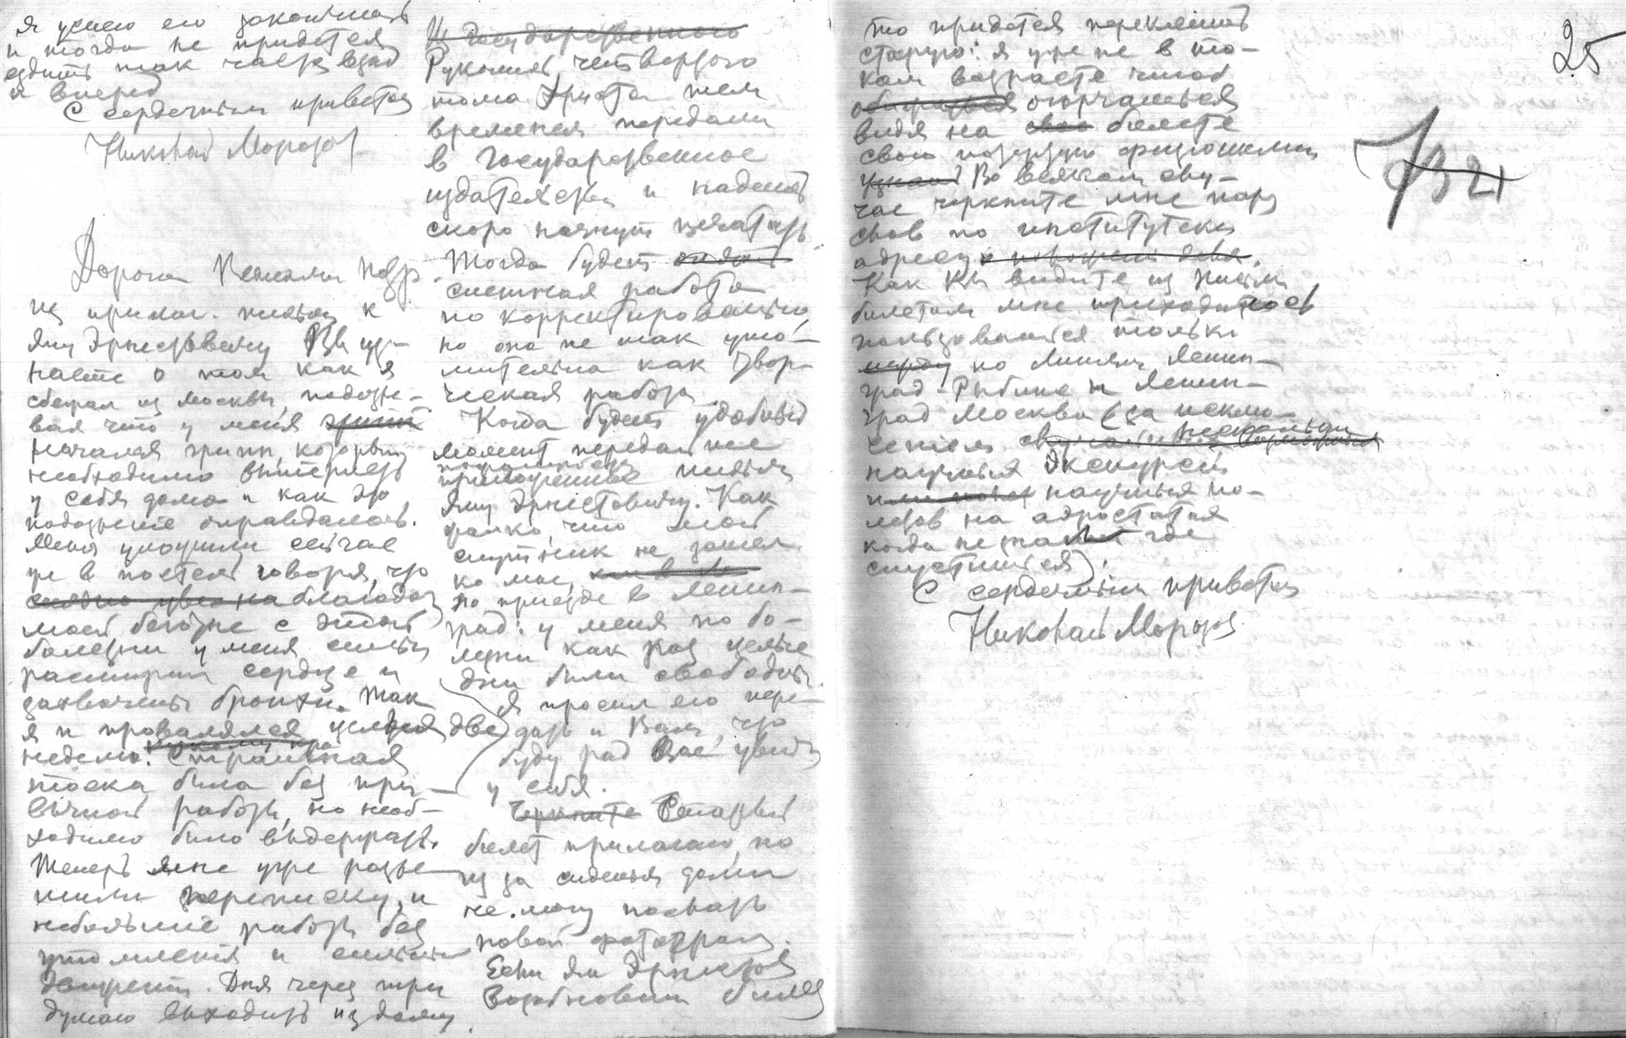 я успею его закончить
и тогда не придется
ездить так часто взад
и вперед
С сердечным приветом
Николай Морозов
Дорогой
из прилаг. письма к
Яну Эрнестовичу Вы уз-
наете о том как я
сбежал из Москвы, подозре-
вая что у меня грипп
начался грипп, который
необходимо вытерпеть
у себя дома и как это
подозрение оправдалось.
Меня уложили сейчас
же в постель говоря, что
благодаря
моей беготне с этой
болезни у меня сильно
расширил сердце и
захвачены бронхи. Так
я и провалялся целые две
недели. Страшная
тоска была без при-
вычной работы, но необ-
ходимо было выдержать.
Теперь мне уже разре-
шили переписку, и
небольшие работы без
утомления и сильных
движений. Дня через три
думаю выходить из дому.
Из Государственного
Рукопись четвертого
тома Христа тем
временем передали
в Государственное
издательство и надеюсь
скоро начнут печатать
Тогда будет опять
спешная работа
по корректированью,
но она не так уто-
мительна как твор-
ческая работа.
Когда будет удобный
момент передайте
приложенное письмо
Яну Эрнестовичу. Как
жалко, что мой
спутник не зашел
ко мне
по приезде в Ленин-
град: у меня по бо-
лезни как раз целые
дни были свободны.
Я просил его пере-
дать и Вам, что
буду рад Вас увидеть
у себя.
Черкните Старый
билет прилагаю, но
из за сиденья дома
не могу послать
новой фотограф.
Если Ян Эрнестов
возобновит билет
то придется переклеить
старую: я уже не в та-
ком возрасте чтоб
огорчаться
видя на свое билете
свою позднюю физиономию
Во всяком слу-
чае черкните мне пару
слов по институтскому
адресу
Как Вы видите из
билетом мне приходилось
пользоваться только
по линиям Ленин-
град-Рыбинск и Ленин-
град Москва (за исклю-
чением
научных экскурсий
научных по-
летов на аэростатах
когда не знаешь где
спустишься).
С сердечным приветом
Николай Морозов
25